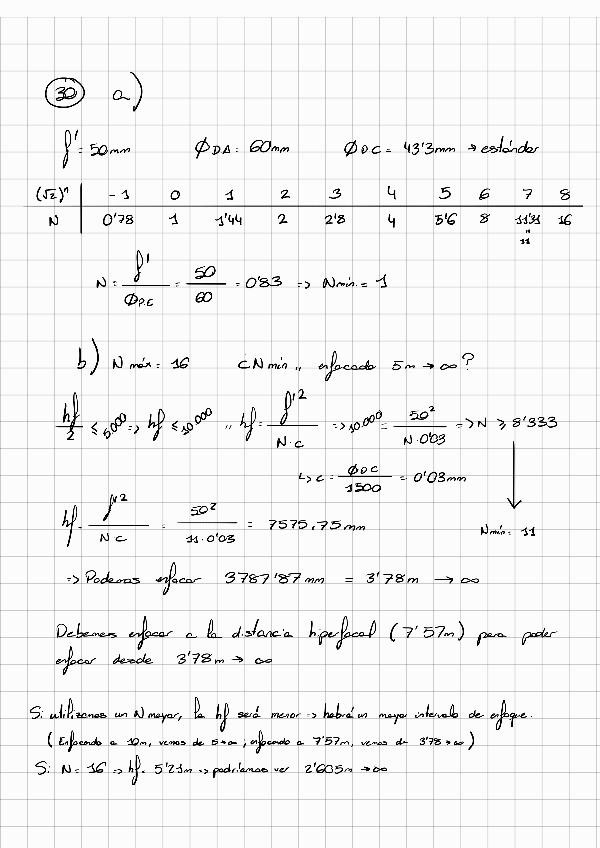 30 a)
f' = 50mm   ØDA = 60mm   ØDC = 43'3mm → estándar
(√2)ⁿ | -1 0 1 2 3 4 5 6 7 8
N | 0'78 1 1'44 2 2'8 4 5'6 8 11'31 16
" 11
N = f'/ØP.C = 50/60 = 0'83 => Nmín. = 1
b) N máx = 16   ¿Nmín ,, enfocado 5m → ∞?
hf/2 ≤ 5000 => hf ≤ 10000 ,, hf = f'²/N·c => 10.000 = 50²/N·0'03 => N ≥ 8'333
↳ c = ØDC/1500 = 0'03mm
hf = f'²/N c = 50²/11·0'03 = 7575,75mm   Nmín = 11
=> Podemos enfocar 3787'87mm = 3'78m → ∞
Debemos enfocar a la distancia hiperfocal (7'57m) para poder
enfocar desde 3'78m → ∞
Si utilizamos un N mayor, la hf será menor → habrá un mayor intervalo de enfoque.
(Enfocando a 10m, vemos de 5→∞; enfocando a 7'57m, vemos de 3'78→∞)
Si N = 16 => hf = 5'21m => podríamos ver 2'605m → ∞